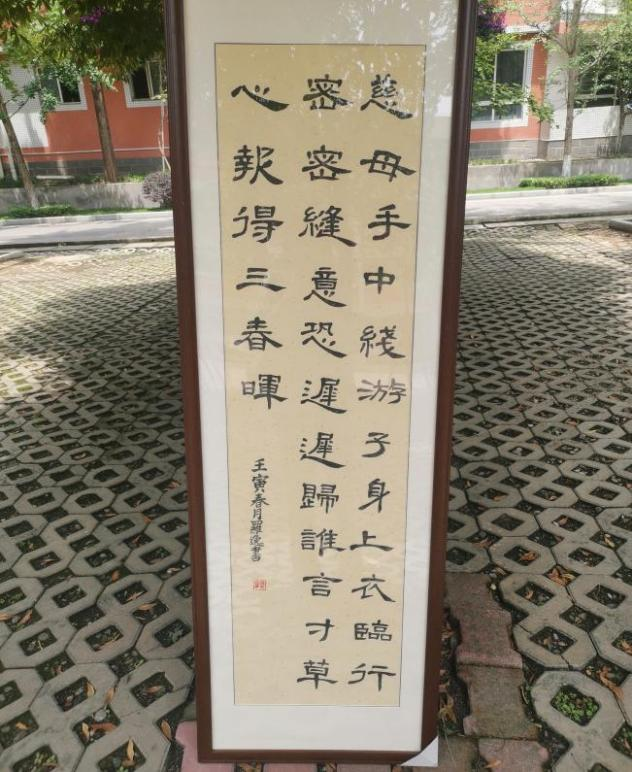 慈母手中綫游子身上衣臨行
密密縫意恐遲遲歸誰言寸草
心報得三春暉
壬寅春月羅逸書